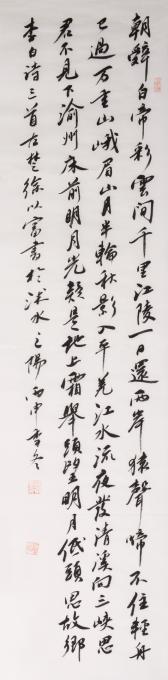 朝辭白帝彩雲間千里江陵一日還兩岸猿聲啼不住輕舟
已過万重山峨眉山月半輪秋影入平羌江水流夜發清溪向三峽思
君不見下渝州床前明月光疑是地上霜舉頭望明月低頭思故鄉
李白诗三首古楚徐以富書於溧水之陽丙申季冬